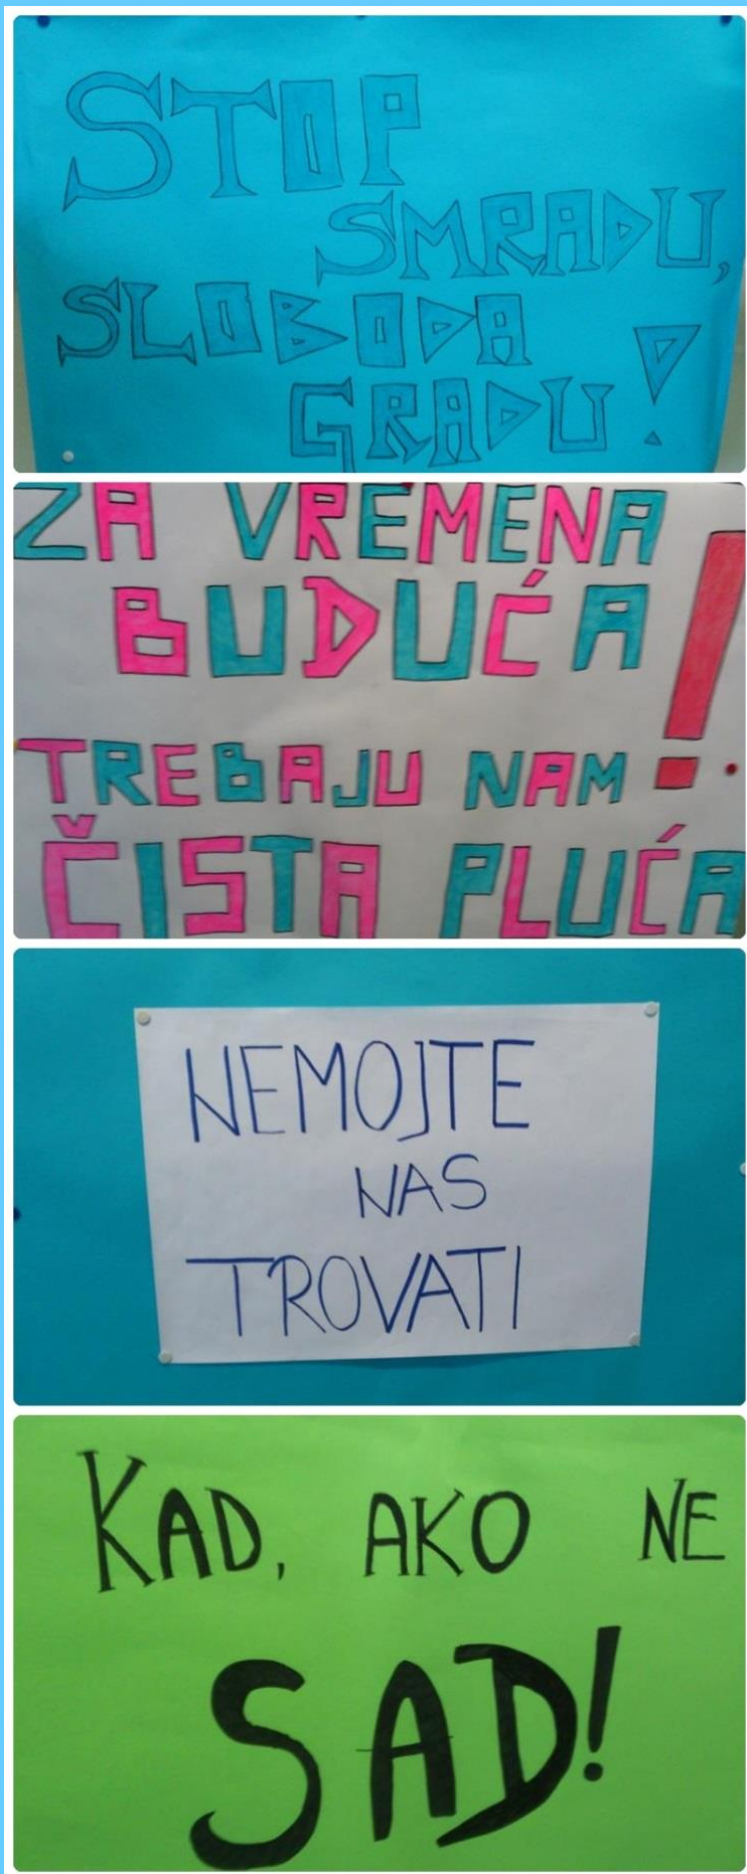 STOP
SMRADU,
SLOBODA
GRADU!
ZA VREMENA
BUDUĆA!
TREBAJU NAM
ČISTA PLUĆA
NEMOJTE
NAS
TROVATI
KAD, AKO NE
SAD!